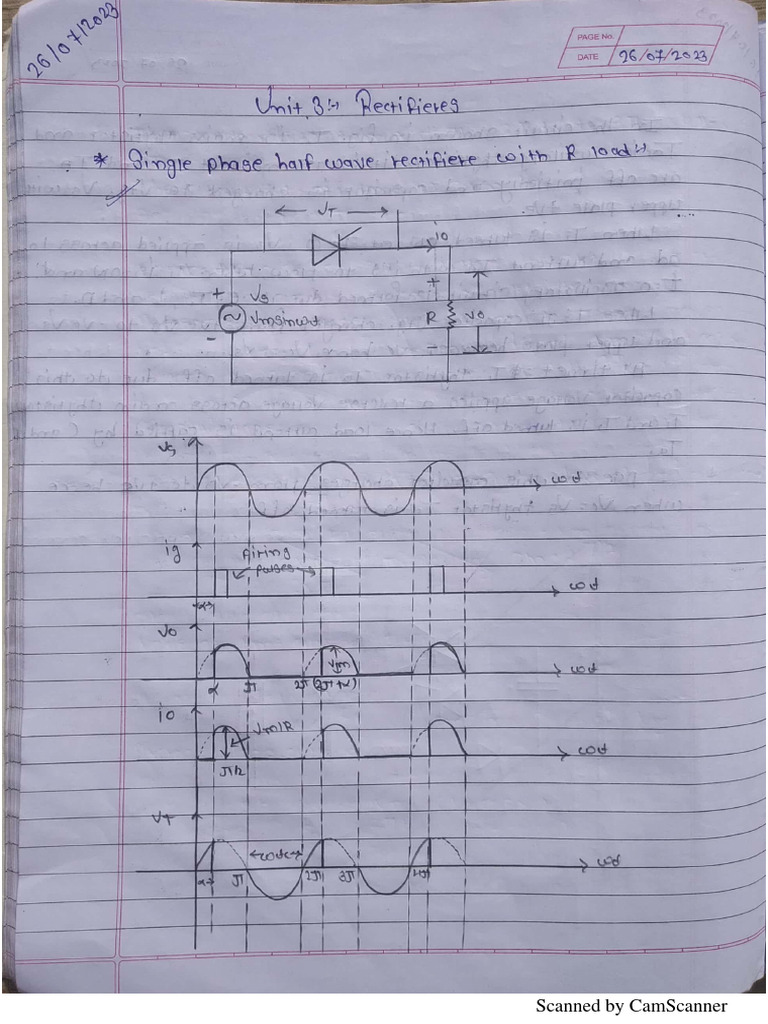 26/07/2023
PAGE No.
DATE 26/07/2023
Unit 3:- Rectifieres
* Single phase half wave rectifiere with R load:-
← VT →
io
+ Vs
Vmsinωt
-
+
R Vo
-
Vs
ωt
ig
Firing
pulses
ωt
←α→
Vo
Vm
ωt
α π 2π (2π+α)
io
Vm/R
ωt
π/2
VT
←ωtc→
ωt
α→ π 2π 3π 4π
Scanned by CamScanner